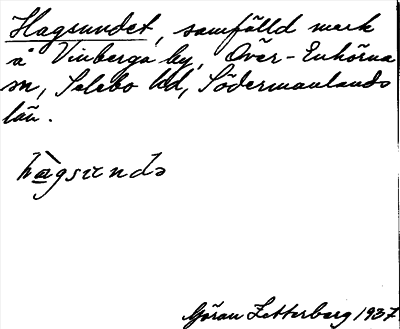 Hagsundet, samfälld mark
å Vinberga by, Över-Enhörna
sn, Selebo hd, Södermanlands
län.
hàgsundə
Göran Zetterberg 1937